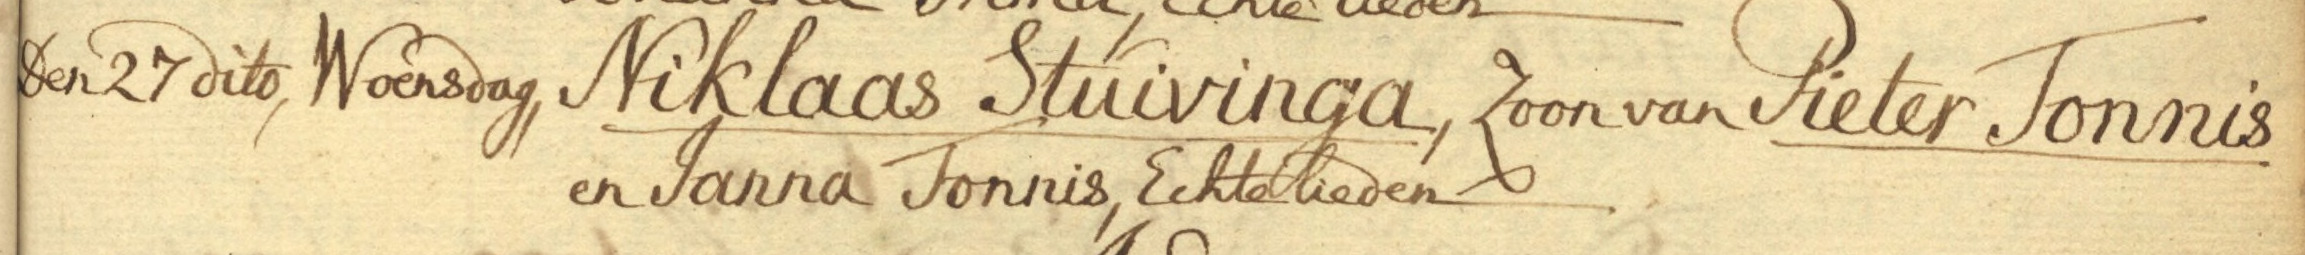 Echte lieden
Den 27 dito, Woensdag, Niklaas Stuivinga, Zoon van Pieter Tonnis
en Janna Tonnis, Echte lieden